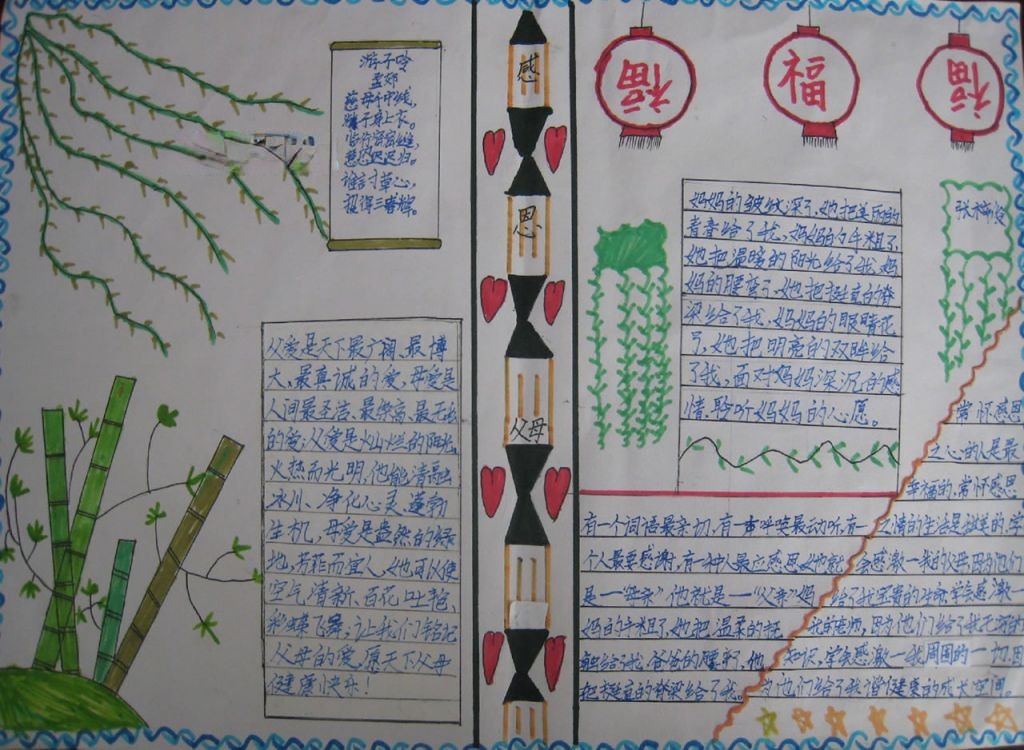 游子吟
孟郊
慈母手中线,
游子身上衣。
临行密密缝,
意恐迟迟归。
谁言寸草心,
报得三春辉。
父爱是天下最广阔、最博
大、最真诚的爱,母爱是
人间最圣洁、最崇高、最无私
的爱;父爱是火山灿烂的阳光,
火热而光明,他能清融
冰川、净化心灵、蓬勃
生机,母爱是盎然的绿
地,芳菲而宜人,她可以使
空气清新、百花吐艳、
彩蝶飞舞,让我们铭记
父母的爱,愿天下父母
健康快乐!
感
恩
父母
福
福
福
妈妈的皱纹深了,她把美丽的
青春给了我,妈妈的手粗了,
她把温暖的阳光给了我,妈
妈的腰弯了,她把挺直的脊
梁给了我,妈妈的眼睛花
了,她把明亮的双眸给
了我,面对妈妈深沉的感
情,聆听妈妈的心愿。
有一个词语最亲切,有一声呼唤最动听,有一
个人最要感谢,有一种人最应感恩,她就
是—“母亲”他就是—“父亲”妈
妈的手粗了,她把温柔的抚
给了我,爸爸的腰弯了,他
把挺直的脊梁给了我。
常怀感恩
之心的人是最
幸福的,常怀感恩
之情的生活是
会感激一我的父母,因为他们
给了我宝贵的生命,学会感激一
我的老师,因为他们给了我
知识,学会感激一我周围的一切,因
为他们给了我健康的成长空间。